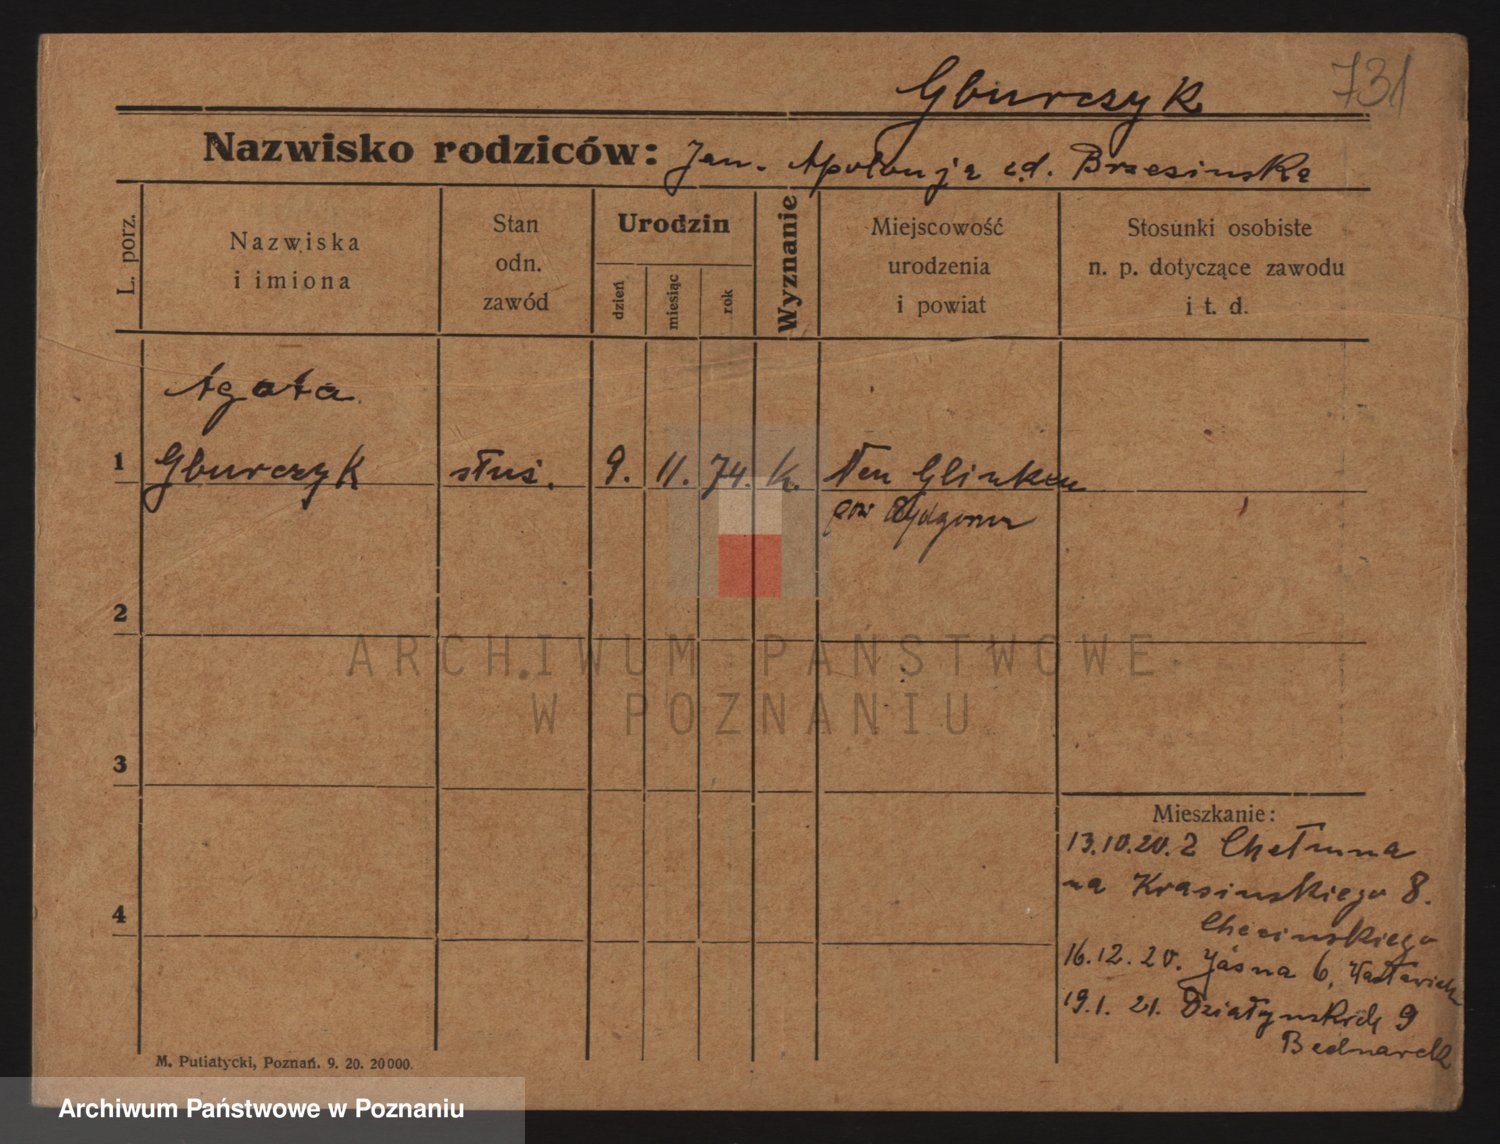 Gburczyk
731
Nazwisko rodziców: Jan. Apolonja Brzesinska
L. porz.
Nazwiska i imiona
Stan odn. zawód
Urodzin
dzień
miesiąc
rok
Wyznanie
Miejscowość urodzenia i powiat
Stosunki osobiste n. p. dotyczące zawodu i t. d.
Agata
1 Gburczyk służ. 9. 11. 74. k. Neu Glinken
pow Bydgoszcz
2
ARCHIWUM PAŃSTWOWE
W POZNANIU
3
Mieszkanie:
13.10.20. z Chełmna
na Krasinskiego 8.
Checinskiego
4
16.12.20. Jasna 6,
19.1.21. Działynskich 9
Bednarek
M. Putiatycki, Poznań. 9. 20. 20000.
Archiwum Państwowe w Poznaniu